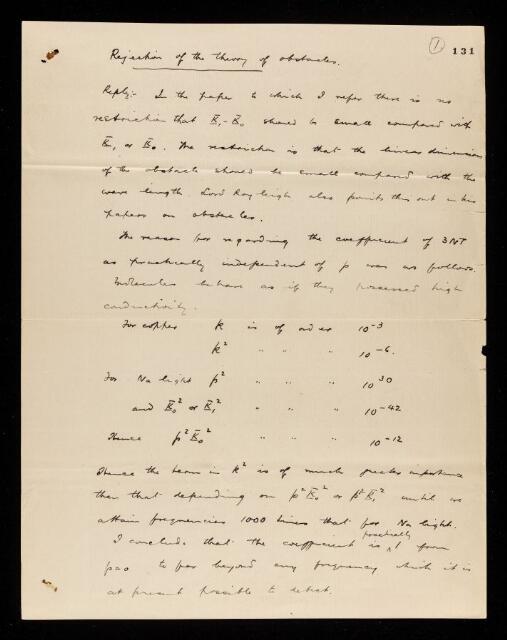 ① 131
Rejection of the theory of obstacles.
Reply:- In the paper to which I refer there is no
restriction that K̄₁-K̄₀ should be small compared with
K̄₁ or K̄₀. The restriction is that the linear dimensions
of the obstacle should be small compared with the
wave length. Lord Rayleigh also points this out in his
papers on obstacles.
The reason for regarding the coefficient of 3NT
as practically independent of p was as follows.
Molecules behave as if they possessed high
conductivity.
For copper k is of order 10⁻³
k² " " " 10⁻⁶.
For Na light p² " " " 10³⁰
and K̄₀² or K̄₁² " " " 10⁻⁴²
Hence p²K̄₀² " " " 10⁻¹²
Hence the term in k² is of much greater importance
than that depending on p²K̄₀² or p²K̄₁² until we
attain frequencies 1000 times that for Na light.
I conclude that the coefficient is practically 1 from
p=0 to far beyond any frequency which it is
at present possible to detect.